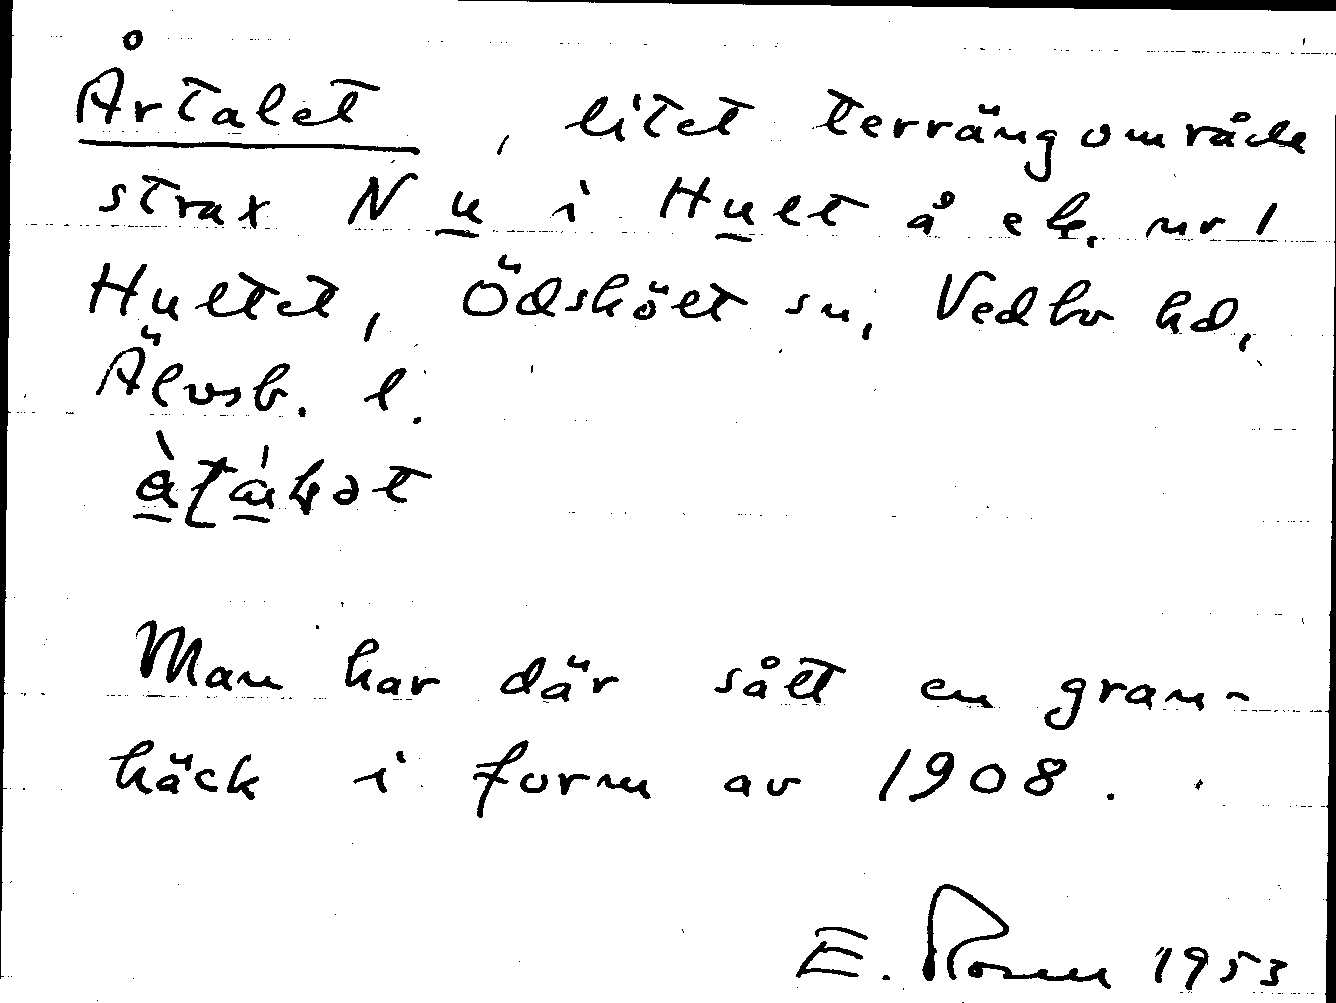 Årtalet, litet terrängområde
strax N u i Hult å ek. nr 1
Hultet, Ödskölt sn, Vedbo hd,
Älvsb. l.
Man har där sått en gran-
häck i form av 1908.
E. Rosell 1953